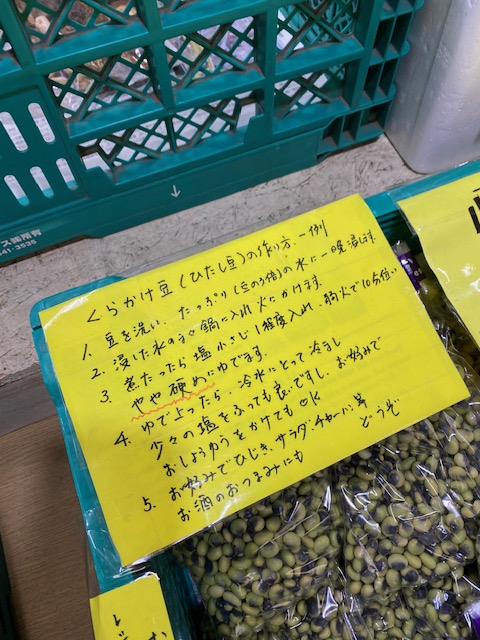 ス㈱所有
41-3535
くらかけ豆(ひたし豆)の作り方. 一例
1. 豆を洗い、たっぷり(豆の3倍)の水に一晩浸します.
2. 浸した水のまゝ鍋に入れ火にかけます.
3. 煮たったら塩小さじ1程度入れ、弱火で10分位い
やや硬めにゆでます.
4. ゆで上ったら、冷水にとって冷まし
少々の塩をふっても良いですし、お好みで
おしょうゆうをかけてもOK
5. お好みでひじき、サラダ、チャーハン等
お酒のおつまみにも どうぞ